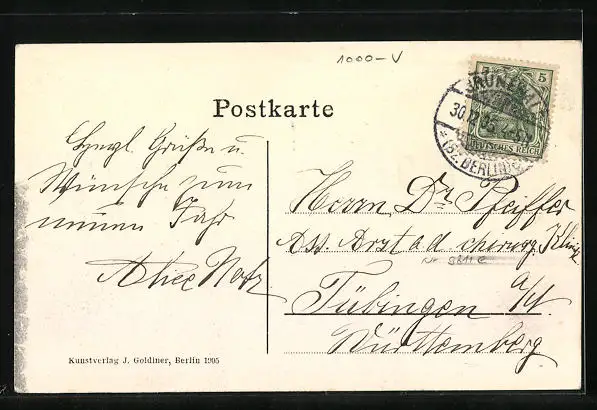 1000-V
Postkarte
5
GRUNEWALD
30.12.05
* (BZ. BERLIN)
DEUTSCHES REICH
Herzl. Grüße u.
Wünsche zum
neuen Jahr
Alice
Herrn Dr. Pfeiffer
Ass. Arzt a d chirurg. Klinik
Tübingen a/N
Württemberg
Kunstverlag J. Goldiner, Berlin 1905